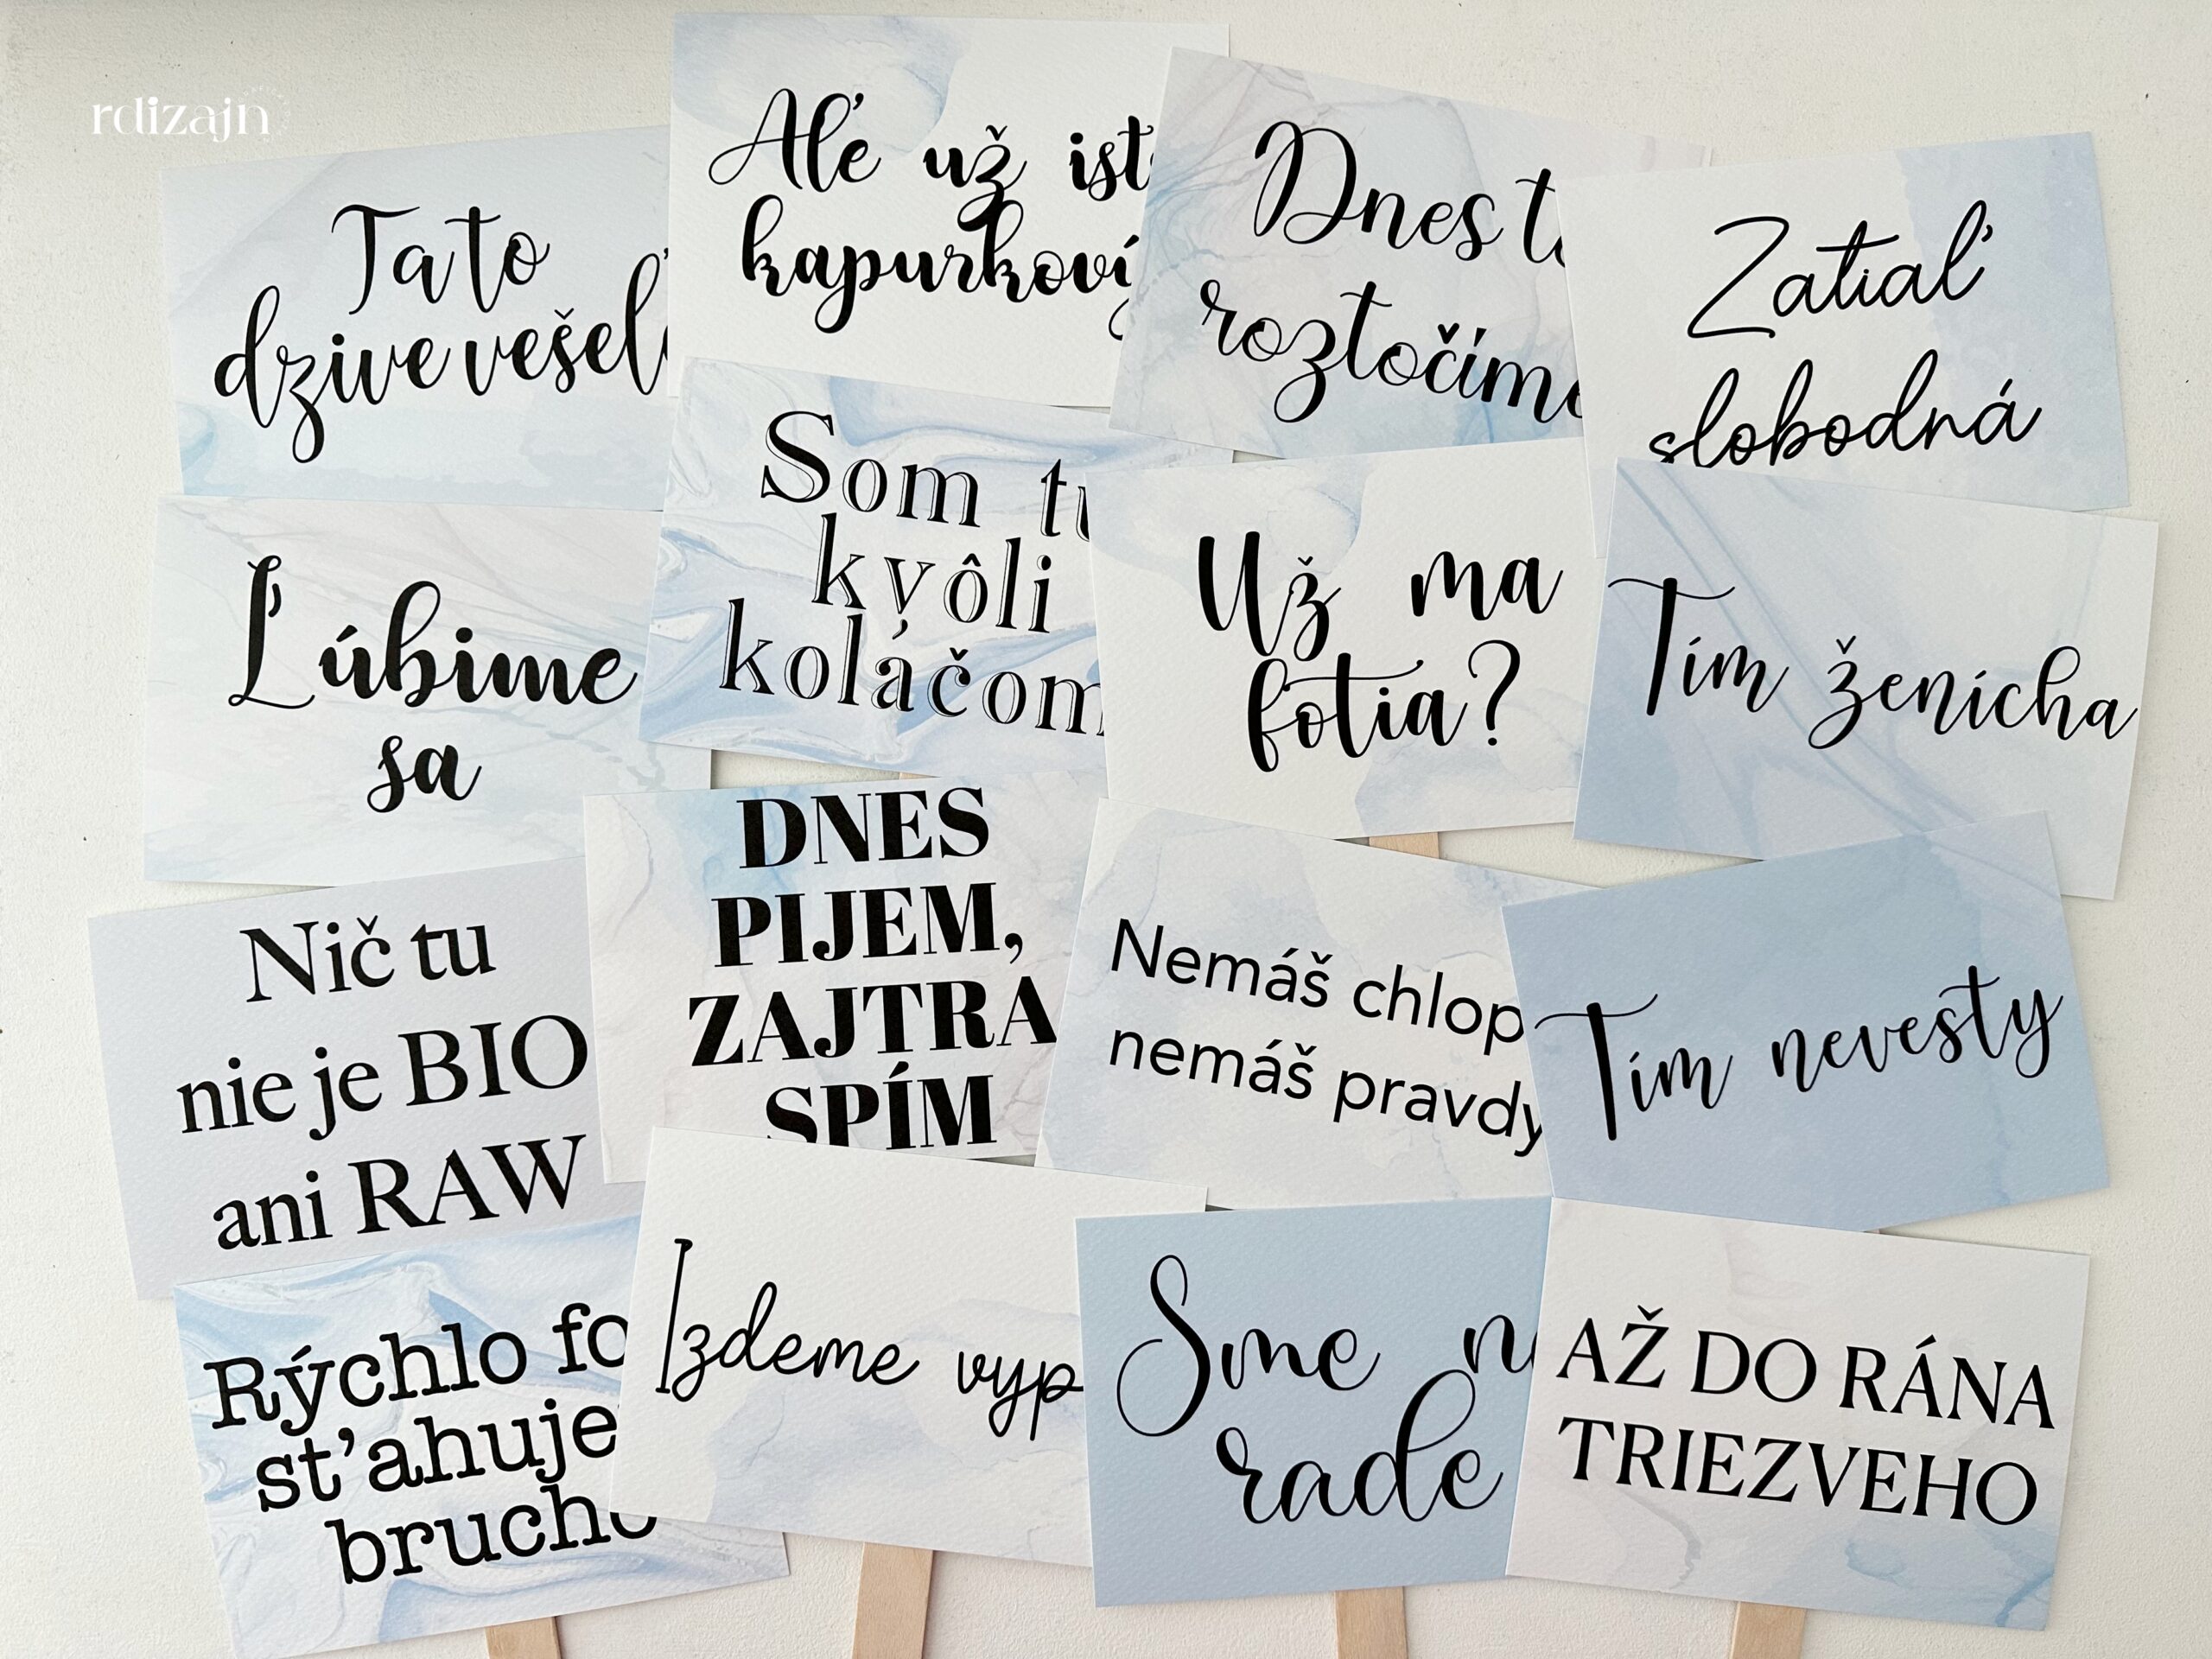 rdizajn
Ta to
dzive vešeľ
Aľe už ist
kapurkový
Dnes t
roztočíme
Zatiaľ
slobodná
Ľúbime
sa
Som tu
kvôli
koláčom
Už ma
fotia?
Tím ženícha
Nič tu
nie je BIO
ani RAW
DNES
PIJEM,
ZAJTRA
SPÍM
Nemáš chlop
nemáš pravdy
Tím nevesty
Rýchlo fo
sťahuje
brucho
Izdeme vyp
Sme n
rade
AŽ DO RÁNA
TRIEZVEHO